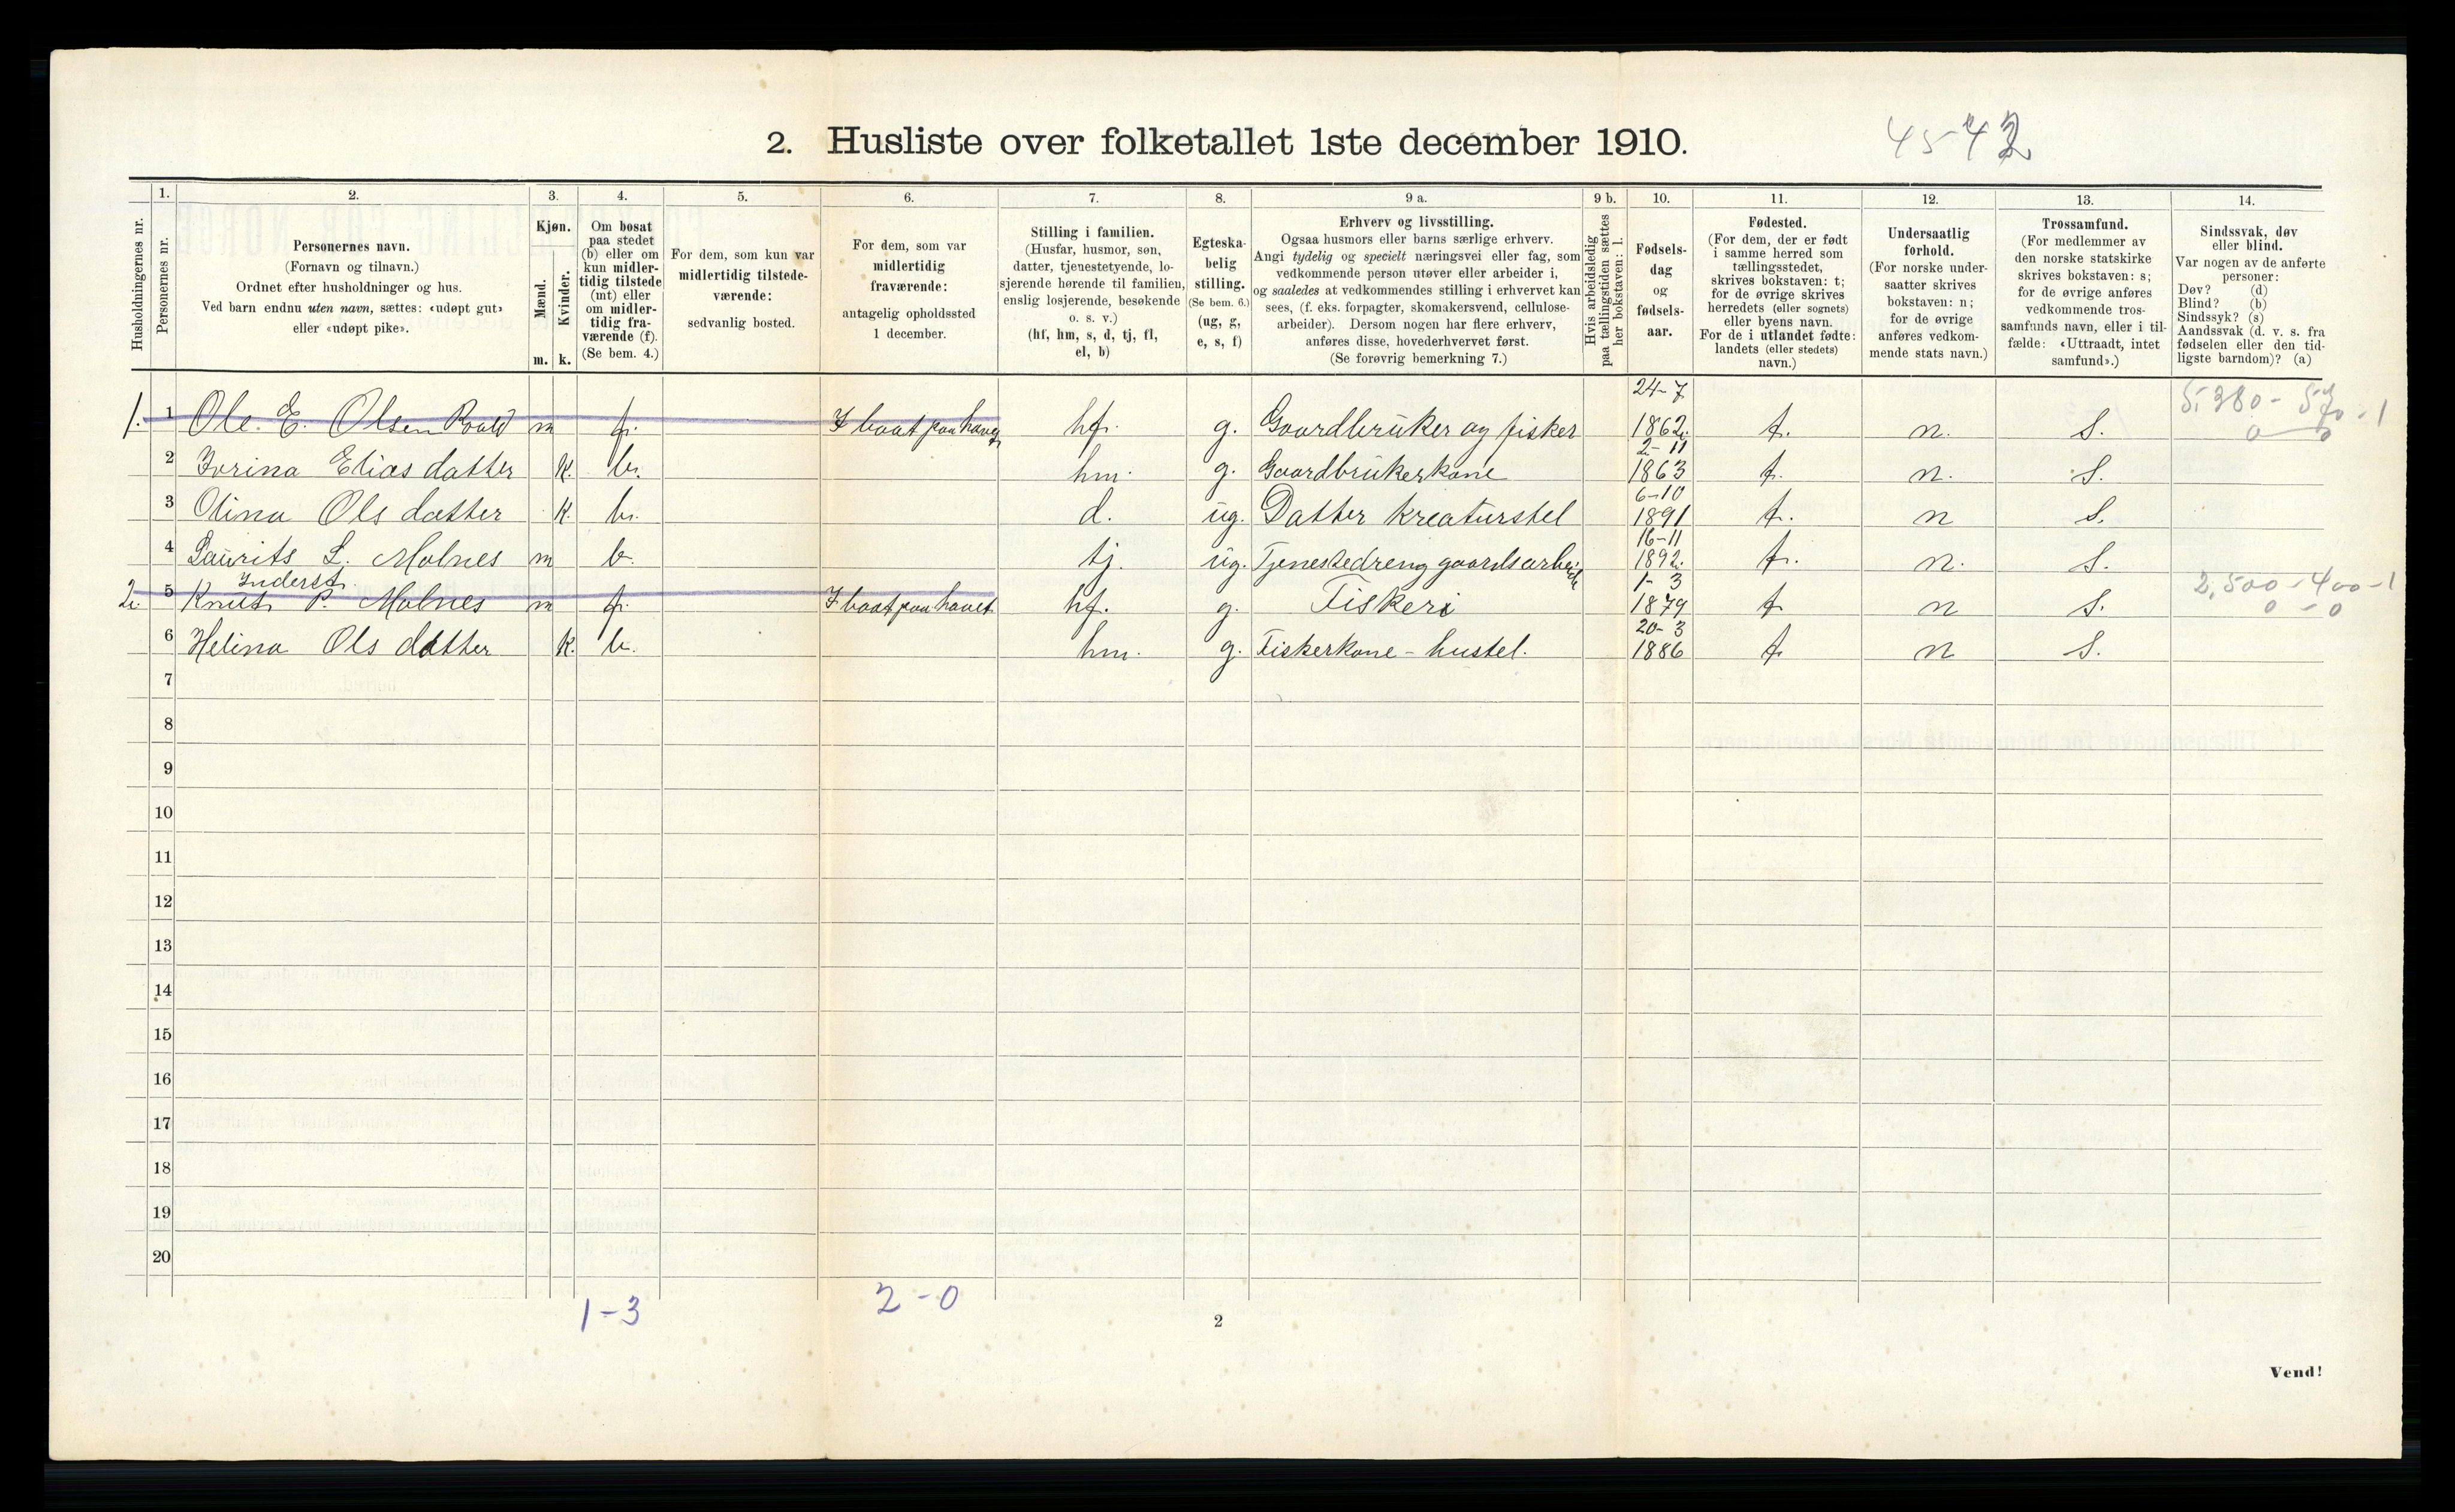 2. Husliste over folketallet 1ste december 1910.
45-42
Husholdningernes nr.
1.
Personernes nr.
2.
Personernes navn.
(Fornavn og tilnavn.)
Ordnet efter husholdninger og hus.
Ved barn endnu uten navn, sættes: «udøpt gut»
eller «udøpt pike».
3.
Kjøn.
Mænd.
Kvinder.
m. k.
4.
Om bosat
paa stedet
(b) eller om
kun midler-
tidig tilstede
(mt) eller
om midler-
tidig fra-
værende (f).
(Se bem. 4.)
5.
For dem, som kun var
midlertidig tilstede-
værende:
sedvanlig bosted.
6.
For dem, som var
midlertidig
fraværende:
antagelig opholdssted
1 december.
7.
Stilling i familien.
(Husfar, husmor, søn,
datter, tjenestetyende, lo-
sjerende hørende til familien,
enslig losjerende, besøkende
o. s. v.)
(hf, hm, s, d, tj, fl,
el, b)
8.
Egteska-
belig
stilling.
(Se bem. 6.)
(ug, g,
e, s, f)
9 a.
Erhverv og livsstilling.
Ogsaa husmors eller barns særlige erhverv.
Angi tydelig og specielt næringsvei eller fag, som
vedkommende person utøver eller arbeider i,
og saaledes at vedkommendes stilling i erhvervet kan
sees, (f. eks. forpagter, skomakersvend, cellulose-
arbeider). Dersom nogen har flere erhverv,
anføres disse, hovederhvervet først.
(Se forøvrig bemerkning 7.)
9 b.
Hvis arbeidsledig
paa tællingstiden sættes
her bokstaven: l.
10.
Fødsels-
dag
og
fødsels-
aar.
11.
Fødested.
(For dem, der er født
i samme herred som
tællingsstedet,
skrives bokstaven: t;
for de øvrige skrives
herredets (eller sognets)
eller byens navn.
For de i utlandet fødte:
landets (eller stedets)
navn.)
12.
Undersaatlig
forhold.
(For norske under-
saatter skrives
bokstaven: n;
for de øvrige
anføres vedkom-
mende stats navn.)
13.
Trossamfund.
(For medlemmer av
den norske statskirke
skrives bokstaven: s;
for de øvrige anføres
vedkommende tros-
samfunds navn, eller i til-
fælde: «Uttraadt, intet
samfund».)
14.
Sindssvak, døv
eller blind.
Var nogen av de anførte
personer:
Døv? (d)
Blind? (b)
Sindssyk? (s)
Aandssvak (d. v. s. fra
fødselen eller den tid-
ligste barndom)? (a)
1. 1 Ole. E. Olsen Roald m f. I baat paa havet hf. g. Gaardbruker og fisker 24-7 1862. t. n. S. 5.380-
0 0
2 Ivrina Elias datter k. b. hm. g. Gaardbrukerkone 2-11 1863 t. n. S.
3 Olina Ols datter k. b. d. ug. Datter kreaturstel 6-10 1891 t. n S.
4 Laurits L. Molnes m b. tj. ug. Tjenestedreng gaardsarbeide 16-11 1892. t. n. S.
Inderst.
2. 5 Knut P. Molnes m f. I baat paa havet hf. g. Fiskeri 1-3 1879 t n S. 2,500-400-1
0-0
6 Helina Ols datter k. b. hm. g. Fiskerkone - hustel. 20-3 1886 t. n S.
7
8
9
10
11
12
13
14
15
16
17
18
19
20
1-3
2-0
2
Vend!